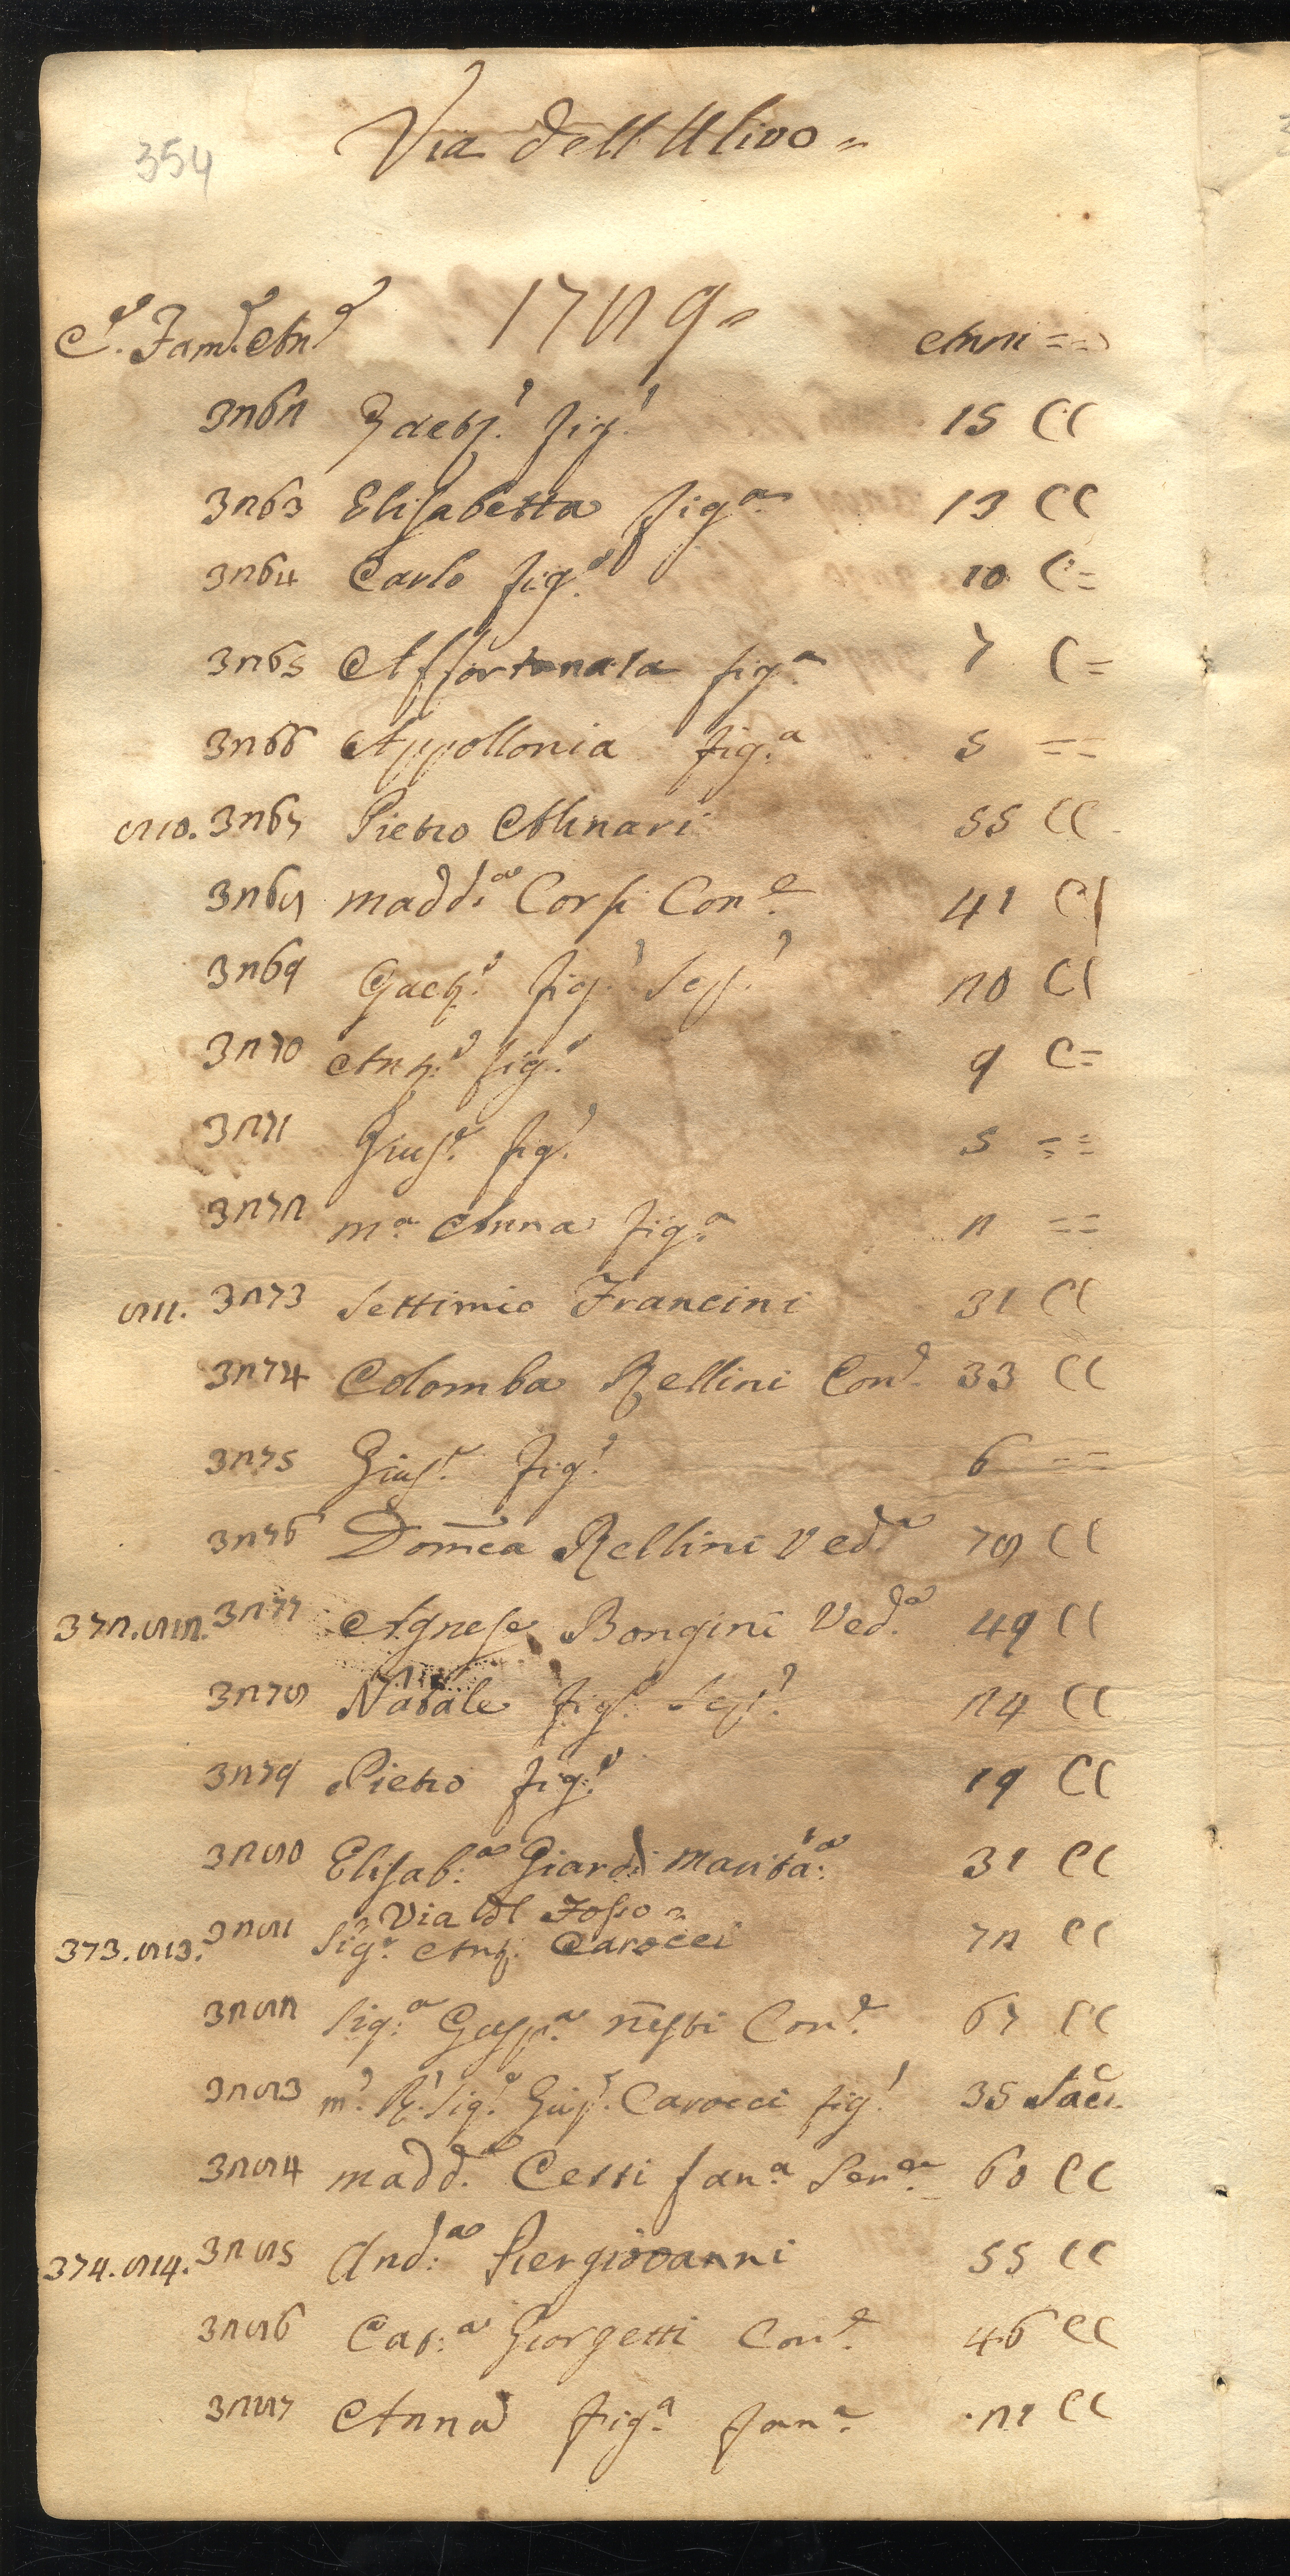 354
Via dell'Ulivo =
C.ᵉ Fam.ᵉ An.ᵉ 1789 = Anni ==
3262 Gaet.º fig.º 15 CC
3263 Elisabetta fig.ª 13 CC
3264 Carlo fig.º 10 C=
3265 Affortunata fig.ª 7 C=
3266 Appollonia fig.ª 5 ==
810. 3267 Pietro Molinari 55 CC
3268 Madd.ª Corsi Con.ᵉ 41 CC
3269 Gaet.º fig.º Sep.º 20 CC
3270 Ant.º fig.º 9 C=
3271 Gius.ᵉ fig.º 5 ==
3272 M.ª Anna fig.ª 2 ==
811. 3273 Settimio Francini 31 CC
3274 Colomba Rellini Con.ᵉ 33 CC
3275 Gius.ᵉ fig.º 6 ==
3276 Domēca Rellini Ved.ª 78 CC
372. 812. 3277 Agnese Bongini Ved.ª 49 CC
3278 Natale fig.º Sep.º 24 CC
3279 Pietro fig.º 19 CC
3280 Elisab.ª Giardi Marita.ª 31 CC
= Via dl Fosso =
373. 813. 3281 Sig.ᵉ Ant. Carocci 72 CC
3282 Sig.ª Gasp.ª Nesti Con.ᵉ 67 CC
3283 M.º R.º Sig.ᵉ Gius.ᵉ Carocci fig.º 35 Sac.
3284 Madd.ª Cetti fan.ª Ser.ª 60 CC
374. 814. 3285 And.ª Piergiovanni 55 CC
3286 Cat.ª Giorgetti Con.ᵉ 46 CC
3287 Anna fig.ª fan.ª 21 CC